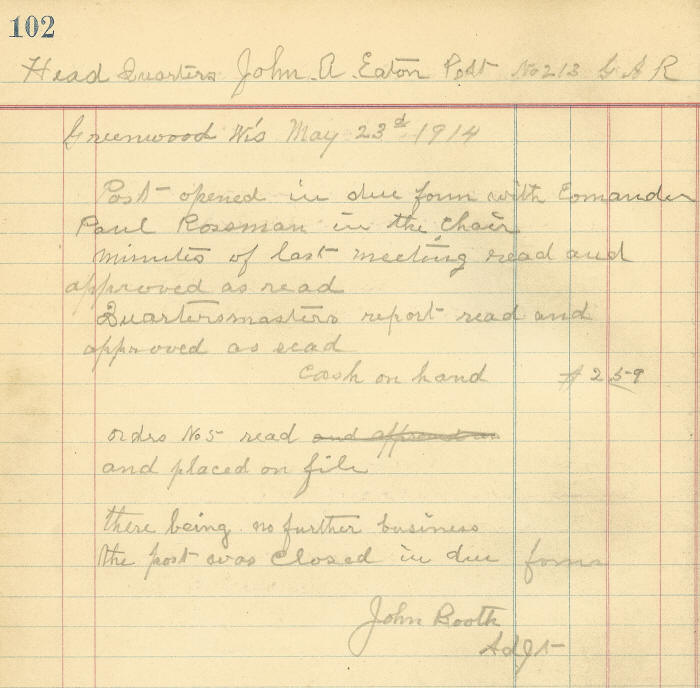 102
Head Quarters John A Eaton Post No 213 G A R
Greenwood Wis May 23d 1914
Post opened in due form with Comander
Paul Rossman in the chair
minutes of last meeting read and
approved as read
Quartersmasters report read and
approved as read
Cash on hand $2 59
ordrs No 5 read and approved as
and placed on file
there being no further business
the post was closed in due form
John Booth
Adjt